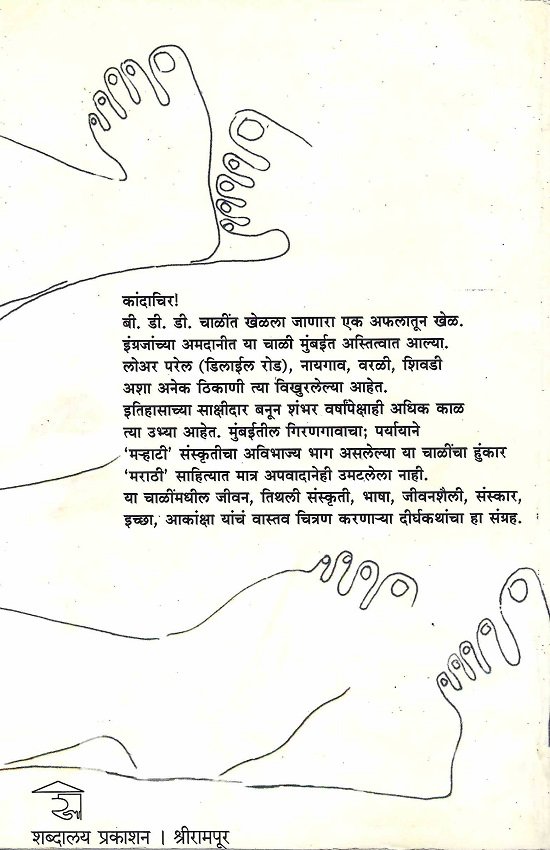 कांदाचिर!
बी. डी. डी. चाळींत खेळला जाणारा एक अफलातून खेळ.
इंग्रजांच्या अमदानीत या चाळी मुंबईत अस्तित्वात आल्या.
लोअर परेल (डिलाईल रोड), नायगाव, वरळी, शिवडी
अशा अनेक ठिकाणी त्या विखुरलेल्या आहेत.
इतिहासाच्या साक्षीदार बनून शंभर वर्षांपेक्षाही अधिक काळ
त्या उभ्या आहेत. मुंबईतील गिरणगावाचा; पर्यायाने
‘मऱ्हाटी’ संस्कृतीचा अविभाज्य भाग असलेल्या या चाळींचा हुंकार
‘मराठी’ साहित्यात मात्र अपवादानेही उमटलेला नाही.
या चाळींमधील जीवन, तिथली संस्कृती, भाषा, जीवनशैली, संस्कार,
इच्छा, आकांक्षा यांचं वास्तव चित्रण करणाऱ्या दीर्घकथांचा हा संग्रह.
शब्दालय प्रकाशन । श्रीरामपूर